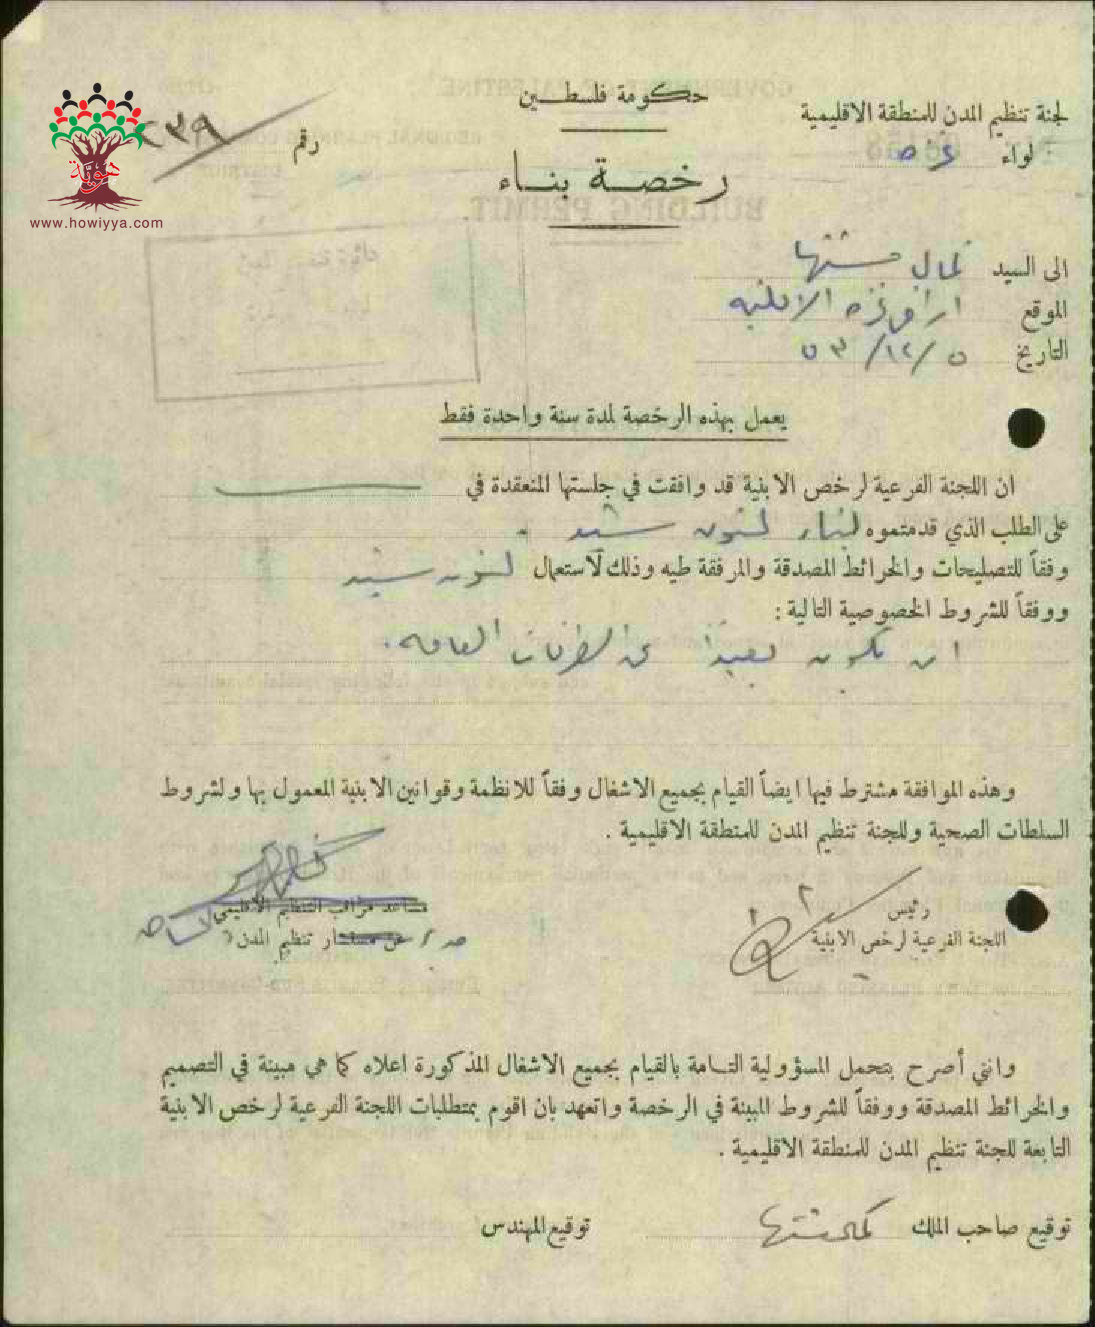 حكومة فلسطين
لجنة تنظيم المدن للمنطقة الاقليمية
لواء غزه
رقم ٢٣٩
رخصة بناء
هوية
www.howiyya.com
الى السيد كمال
الموقع اراضي غزه الاقليميه
التاريخ ٥/١٢/٥٣
يعمل بهذه الرخصة لمدة سنة واحدة فقط
ان اللجنة الفرعية لرخص الابنية قد وافقت في جلستها المنعقدة في
على الطلب الذي قدمتموه لبناء
وفقاً للتصليحات والخرائط المصدقة والمرفقة طيه وذلك لاستعمال
ووفقاً للشروط الخصوصية التالية :
ان يكون بعيداً عن الطرقات العامه .
وهذه الموافقة مشترط فيها ايضاً القيام بجميع الاشغال وفقاً للانظمة وقوانين الابنية المعمول بها ولشروط
السلطات الصحية وللجنة تنظيم المدن للمنطقة الاقليمية .
رئيس
اللجنة الفرعية لرخص الابنية
مساعد مراقب التنظيم الاقليمي
عن مستشار تنظيم المدن
وانني أصرح بتحمل المسؤولية التامة بالقيام بجميع الاشغال المذكورة اعلاه كما هي مبينة في التصميم
والخرائط المصدقة ووفقاً للشروط المبينة في الرخصة واتعهد بان اقوم بمتطلبات اللجنة الفرعية لرخص الابنية
التابعة للجنة تنظيم المدن للمنطقة الاقليمية .
توقيع صاحب الملك
توقيع المهندس